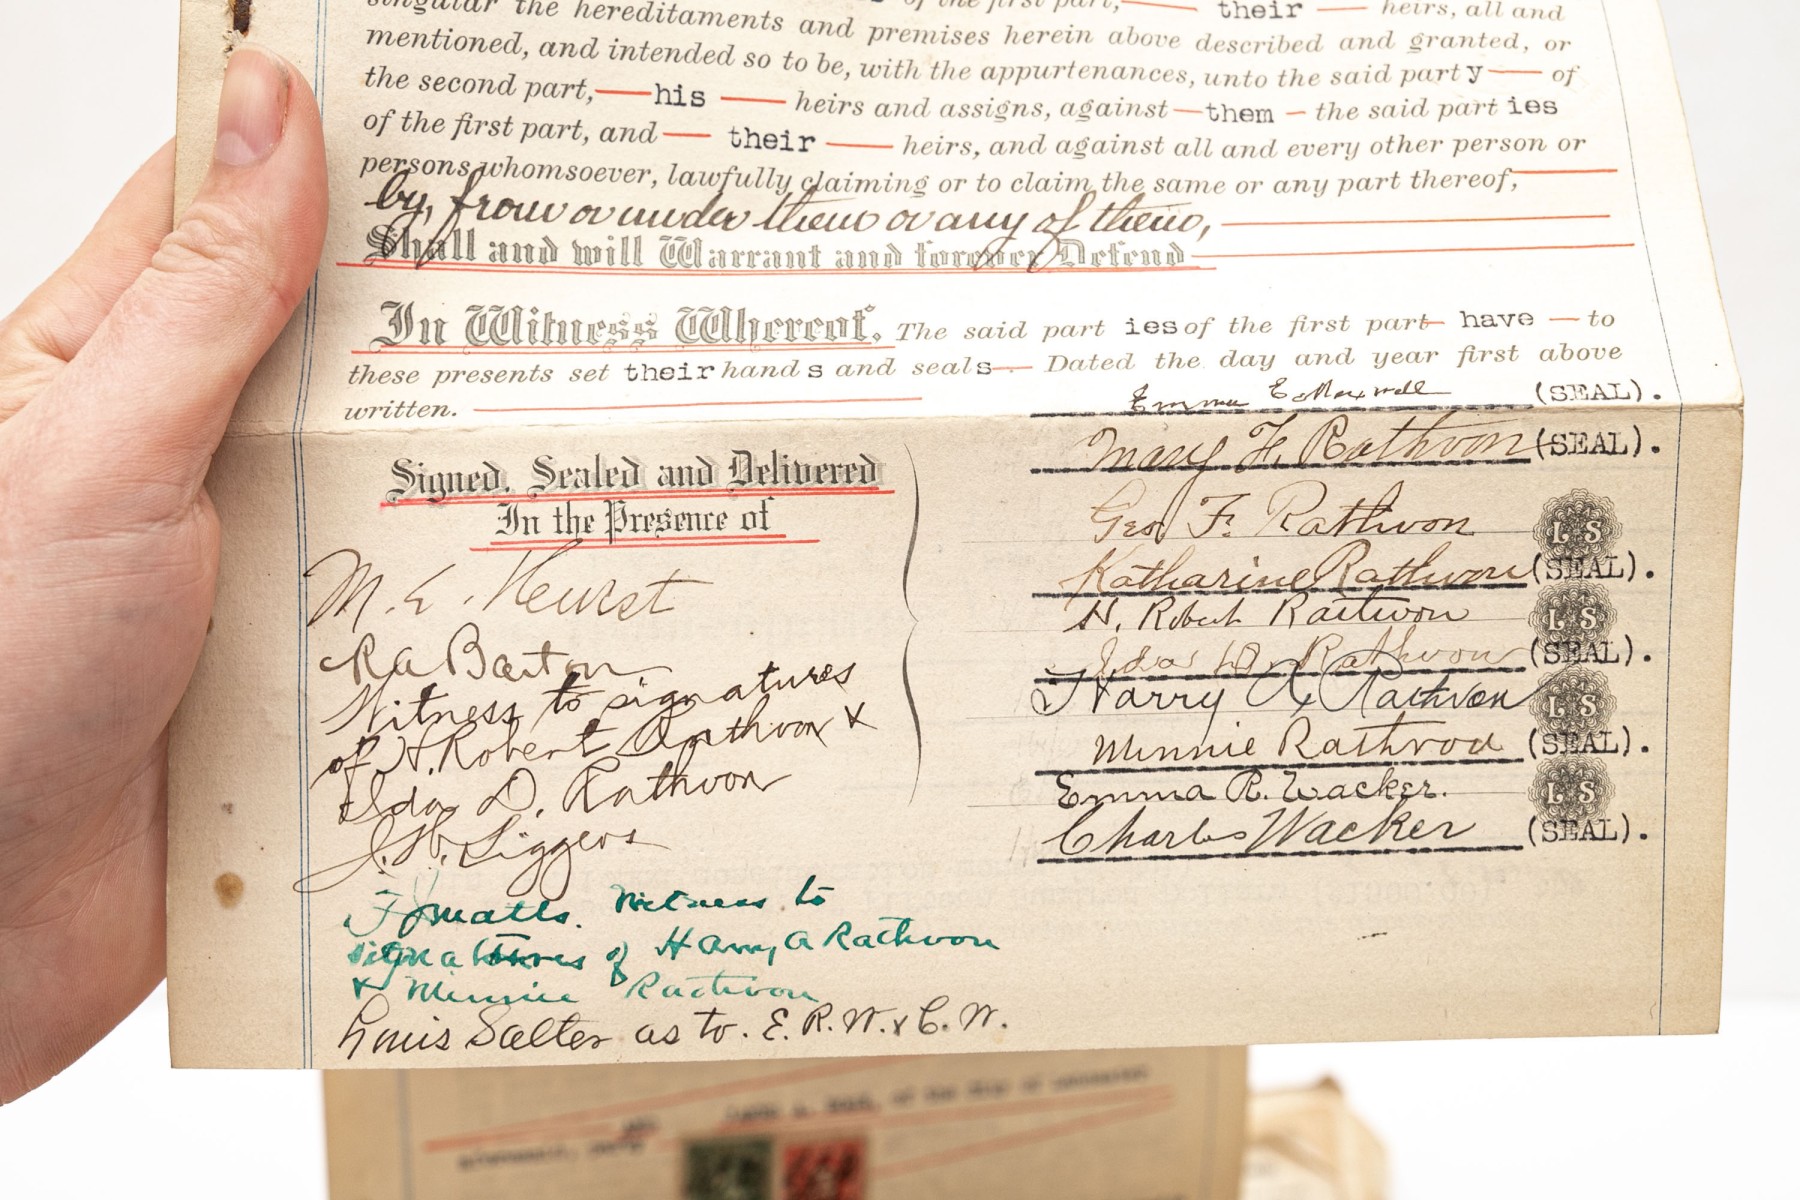 singular the hereditaments and premises herein above described and granted, or
of the first part, their heirs, all and
mentioned, and intended so to be, with the appurtenances, unto the said party of
the second part, his heirs and assigns, against them the said parties
of the first part, and their heirs, and against all and every other person or
persons whomsoever, lawfully claiming or to claim the same or any part thereof,
by, from or under them or any of them,
Shall and will Warrant and forever Defend
In Witness Whereof, The said parties of the first part have to
these presents set their hands and seals Dated the day and year first above
written.
Emma E. Maxwell (SEAL).
Mary F. Rathvon (SEAL).
Signed, Sealed and Delivered
In the Presence of
Geo F. Rathvon L S
Katharine Rathvon (SEAL).
H. Robert Rathvon L S
Ida D. Rathvon (SEAL).
Harry A Rathvon L S
Minnie Rathvon (SEAL).
Emma R. Wacker. L S
Charles Wacker (SEAL).
M. E. Hurst
R A Barton
Witness to signatures
of H. Robert Rathvon &
Ida D. Rathvon
J. W. Siggers
Witness to
signatures of Harry A Rathvon
& Minnie Rathvon
Louis Salter as to. E. R. W. & C. W.